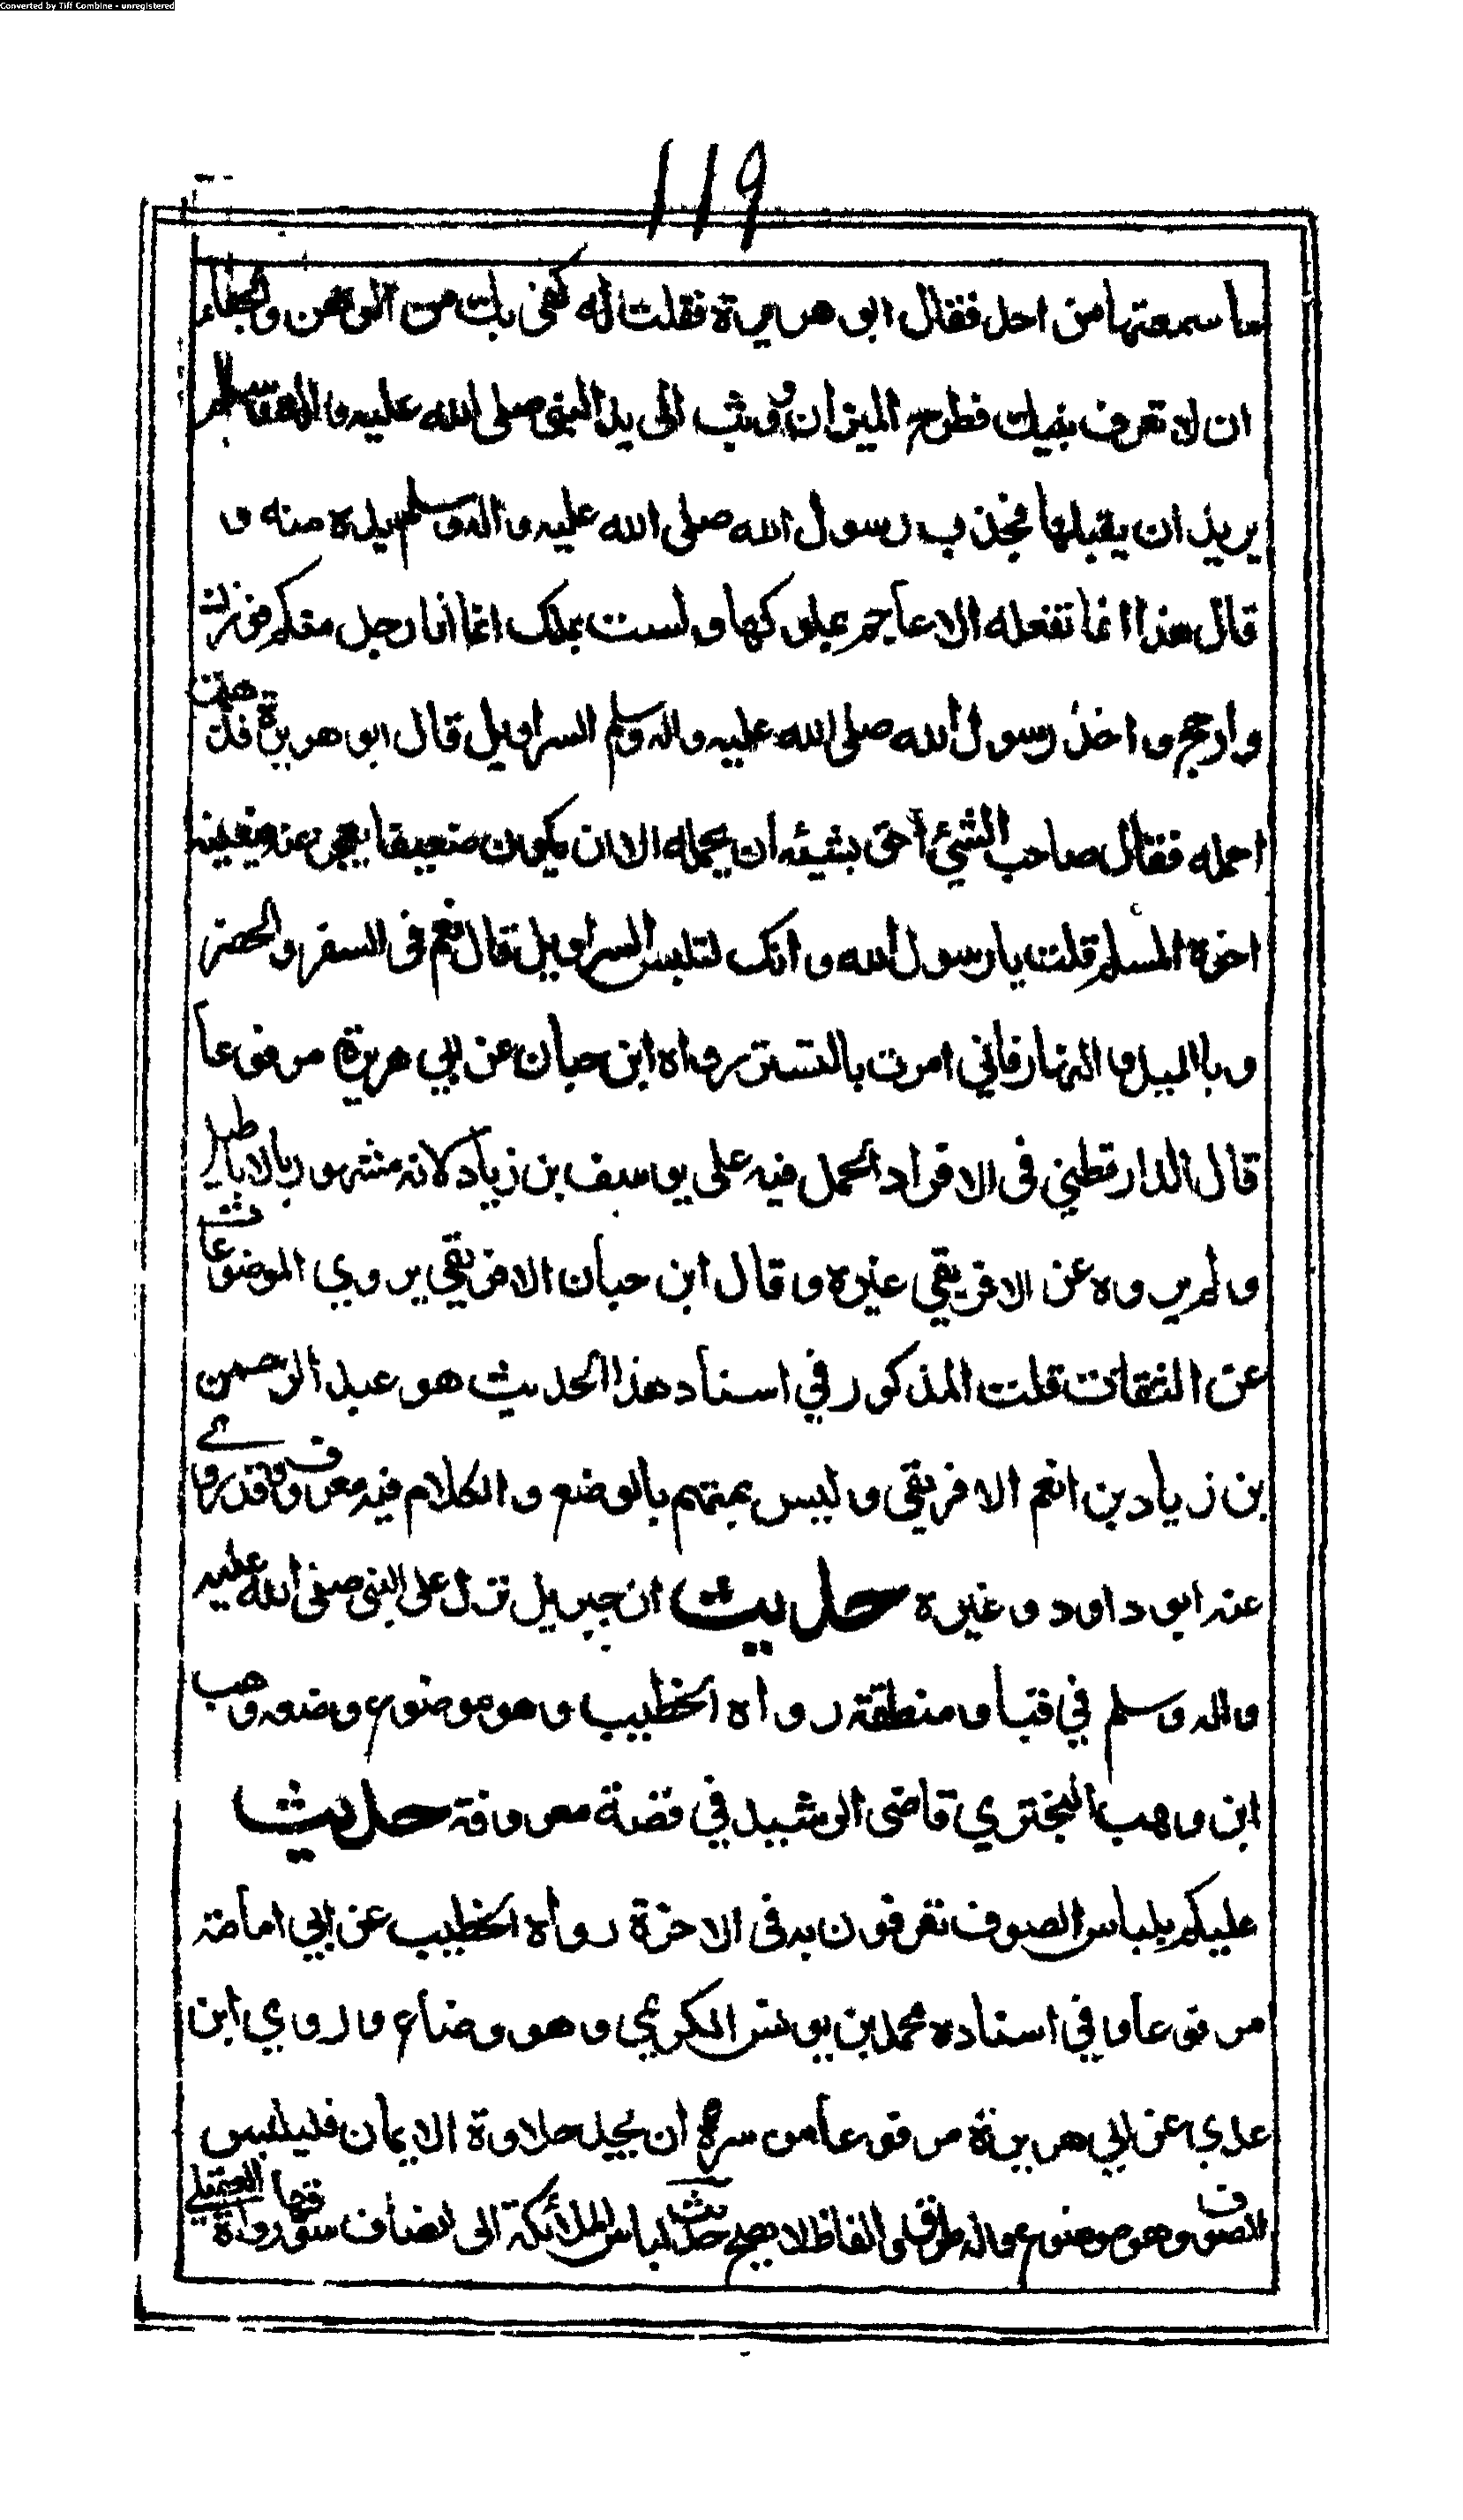 Converted by Tiff Combine - unregistered
١١٩
ما سمعتها من احد فقال ابو هريرة فقلت له كفى بك من الوهن والجفاء
ان لا تعرف نبيك فطرح الميزان ووثب الى يد النبي صلى الله عليه واله وسلم
يريد ان يقبلها فجذب رسول الله صلى الله عليه واله وسلم يده منه و
قال هذا انما تفعله الاعاجم بملوكها ولست بملك انما انا رجل منكم فزن
وارجح واخذ رسول الله صلى الله عليه واله وسلم السراويل قال ابو هريرة فذهبت
احمله فقال صاحب الشئ احق بشيئه ان يحمله الا ان يكون ضعيفا يعجز عنه فيعينه
اخوه المسلم قلت يا رسول الله وانك لتلبس السراويل قال نعم في السفر والحضر
وبالليل والنهار فاني امرت بالتستر رواه ابن حبان عن ابي هريرة مرفوعا
قال الدارقطني في الافراد الحمل فيه على يوسف بن زياد لانه مشهور بالاباطيل
ولم يروه عن الافريقي غيره وقال ابن حبان الافريقي يروي الموضوعات
عن الثقات قلت المذكور في اسناد هذا الحديث هو عبد الرحمن
بن زياد بن انعم الافريقي وليس بمتهم بالوضع والكلام فيه معروف وقد روى
عنه ابو داود وغيره حديث ان جبريل نزل على النبي صلى الله عليه
واله وسلم في قباء ومنطقة رواه الخطيب وهو موضوع وضعه وهب
ابن وهب البختري قاضى الرشيد في قصة معروفة حديث
عليكم بلباس الصوف تعرفون به في الاخرة رواه الخطيب عن ابي امامة
مرفوعا وفي اسناده محمد بن يونس الكريمي وهو وضاع وروي ابن
عدي عن ابي هريرة مرفوعا من سره ان يجد حلاوة الايمان فليلبس
الصوف وهو موضوع وله طرق والفاظ لا يصح حديث لباس الملائكة الى انصاف سوقها رواه العقيلي